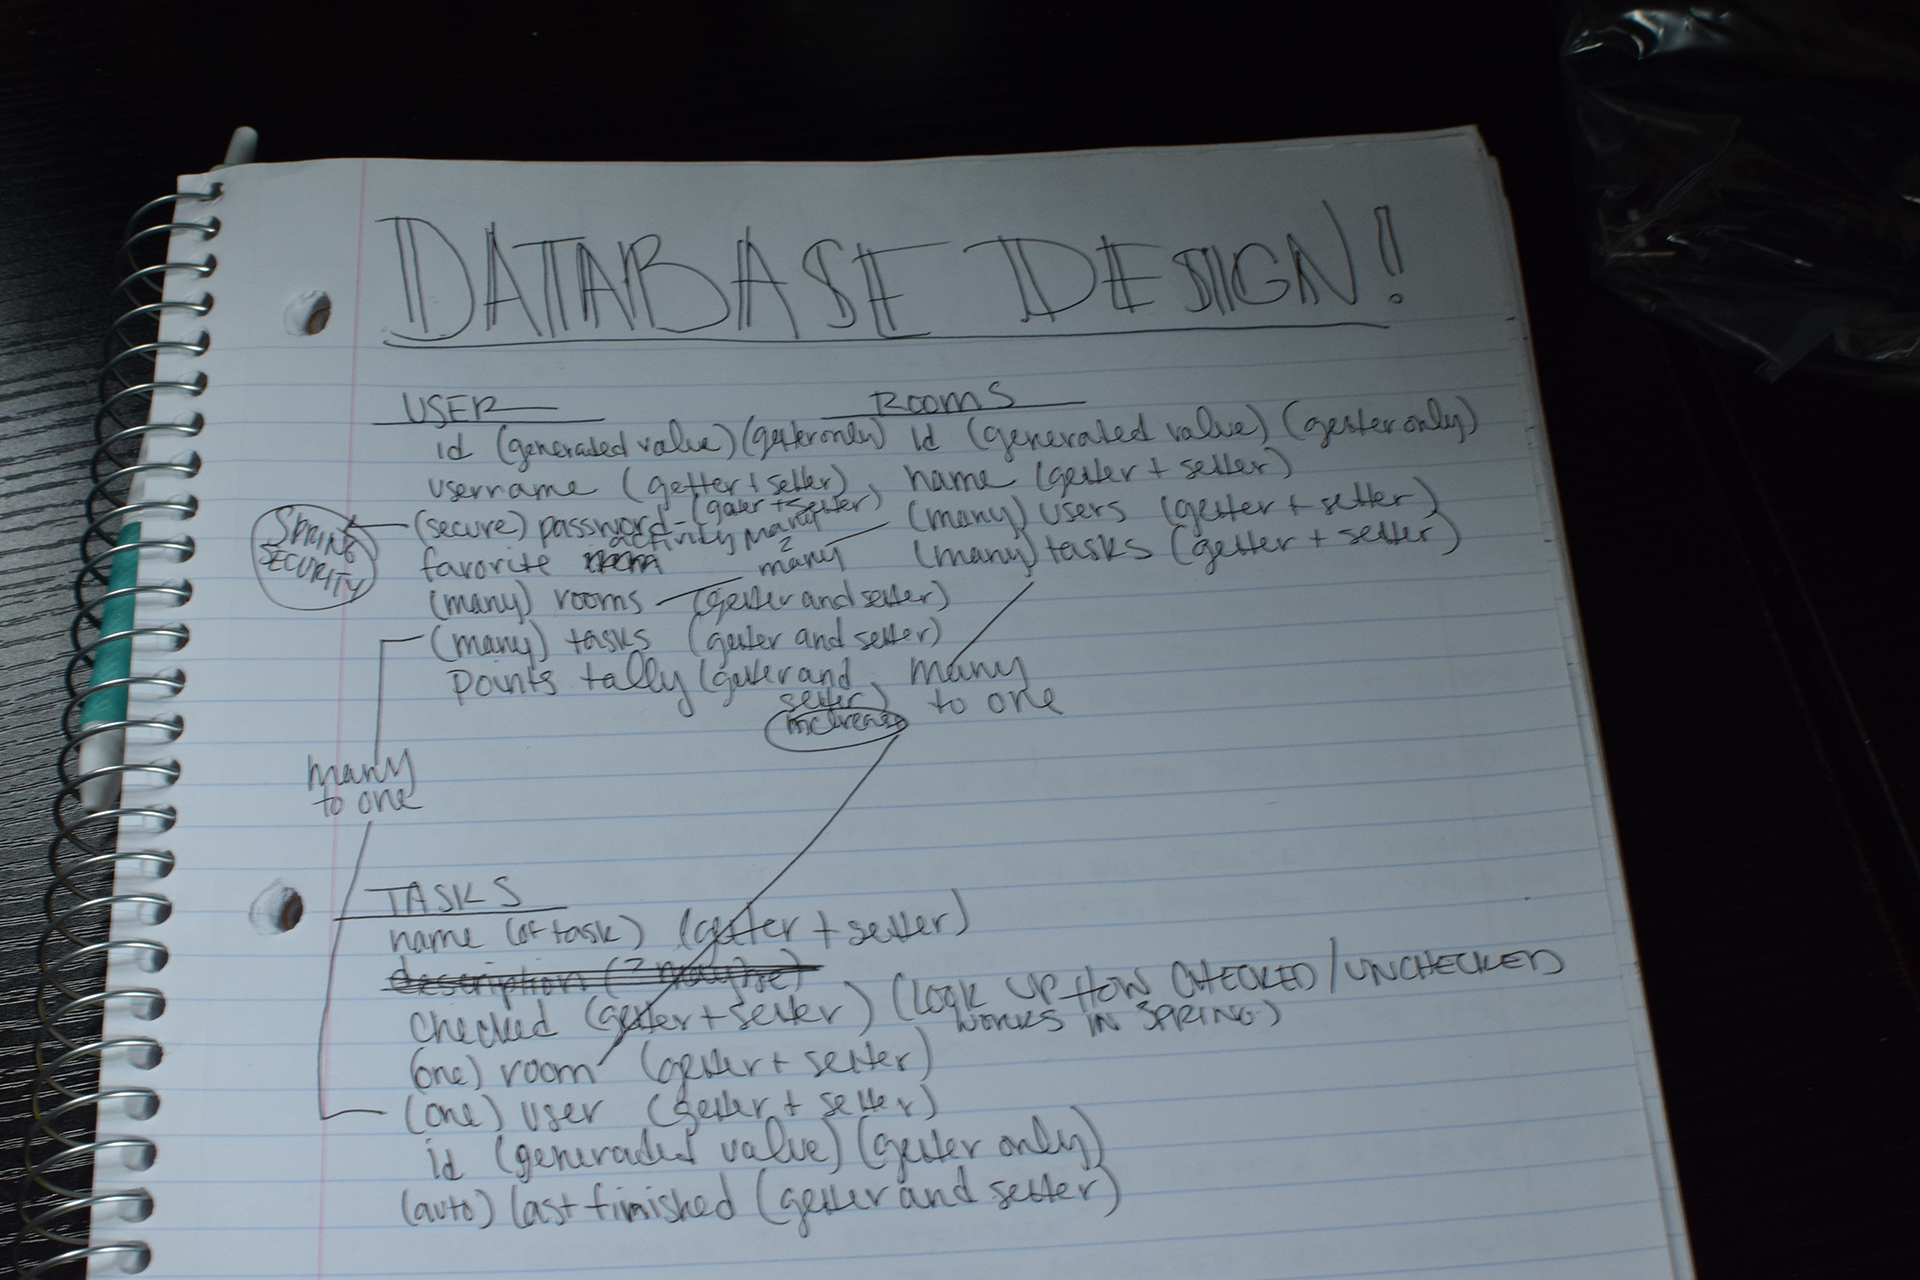 DATABASE DESIGN!
USER
id (generated value) (getter only)
username (getter + setter)
(secure) password - (getter + setter)
SPRING
SECURITY
favorite activity
many
2
many
(many) rooms (getter and setter)
(many) tasks (getter and setter)
points tally (getter and
setter)
increase
ROOMS
id (generated value) (getter only)
name (getter + setter)
(many) users (getter + setter)
(many) tasks (getter + setter)
many
to one
many
to one
TASKS
name (of task) (getter + setter)
description (? maybe)
checked (getter + setter) (LOOK UP HOW CHECKED/UNCHECKED
WORKS IN SPRING)
(one) room (getter + setter)
(one) user (getter + setter)
id (generated value) (getter only)
(auto) last finished (getter and setter)